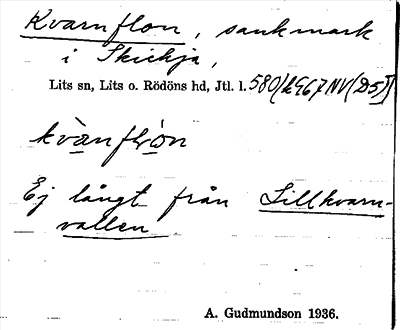 Kvarnflon, sankmark
i Skickja,
Lits sn, Lits o. Rödöns hd, Jtl. l. 580
kvànflòn
Ej långt från Lillkvarn-
vallen
A. Gudmundson 1936.